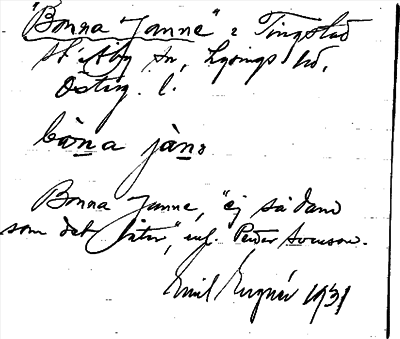 "Bonna Janne" i Tingstad
St. Åby sn, Lysings hd,
Östg. l.
bòn̲a jàn̲ə
Bonna Janne, "ej sådan
som det låter", enl. Peder Svenson.
Emil 1931